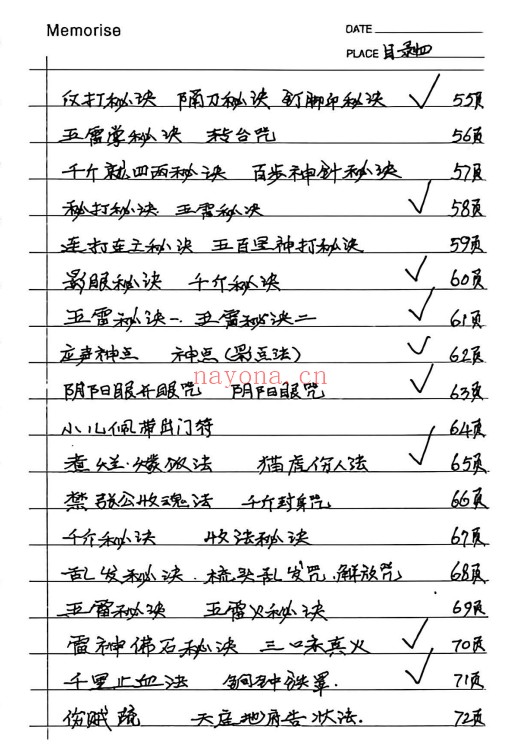 Memorise
DATE
PLACE 目录四
仪打秘诀 隔刀秘诀 钉脚印秘诀 55页
五雷掌秘诀 转台咒 56页
千斤就四两秘诀 百步神针秘诀 57页
秘打秘诀 五雷秘诀 58页
连打在主秘诀 五百里神打秘诀 59页
影眼秘诀 千斤秘诀 60页
五雷秘诀一 五雷秘诀二 61页
应声神点 神点(影点法) 62页
nayona.cn
阴阳眼开眼咒 阴阳眼咒 63页
小儿佩带出门符 64页
煮烂 法 猫虎伤人法 65页
禁张公收魂法 千斤封身咒 66页
千斤秘诀 收法秘诀 67页
乱发秘诀 梳头乱发咒.解放咒 68页
五雷秘诀 五雷火秘诀 69页
雷神佛石秘诀 三口来真火 70页
千里止血法 铁罩. 71页
伤贼疏 天庭地府告状法. 72页